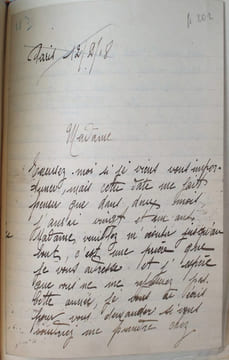 N° 202
Paris 12/2/18
Madame
Excusez-moi si je viens vous impor-
tuner, mais cette date me fait
penser que dans deux mois,
j'aurai vingt et un ans.
Madame, veuillez m'écouter jusqu'au
bout, c'est une prière que
je vous adresse et j'espère
que vous ne me refuserez pas.
Cette année, je vous
pour vous demander si vous
me prendre chez